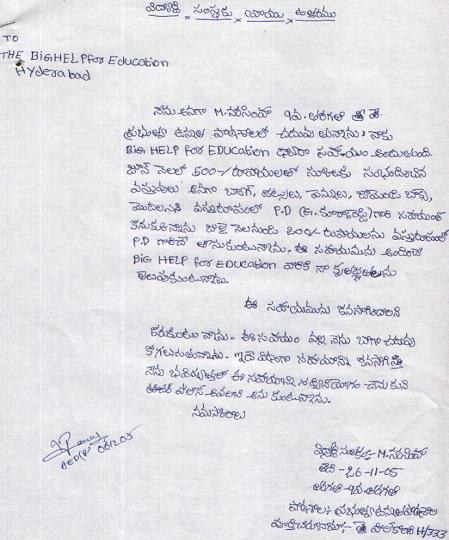 విద్యార్థి సంస్థకు వ్రాయు ఉత్తరము
TO
THE BIG HELP for Education
Hyderabad
నేను అనగా M. నరసింహా 7వ తరగతి
ప్రభుత్వ ఉన్నత పాఠశాలలో చదువు తున్నాను. నాకు
BIG HELP FOR EDUCATION ద్వారా సహాయం అందుతుంది.
జూన్ నెలలో 500-/ రూపాయలతో స్కూలుకు సంభందించిన
వస్తువులు అనగా బ్యాగ్, పుస్తకాలు, పెన్నులు, జామెంట్రి బాక్స్,
మొదలగునవి వస్తురూపంలో P.D గారి సహాయంతో
కొనుక్కున్నాను జులై నెలనుండి 200/- రుపాయలను వస్తురూపంలో
P.D గారితో తీసుకుంటున్నాను. ఈ సహాయమును అందించిన
BIG HELP FOR EDUCATION వారికి నా కృతజ్ఞతలును
తెలుపుకుంటున్నాను.
ఈ సహాయమును కొనసాగించాలని
కోరుకుంటు న్నాను. ఈ సహాయం వల్ల నేను బాగా చదువు
కోగలుగుతున్నాను. ఇదేవిధంగా సహాయాన్ని కొనసాగిస్తే
నేను భవిష్యత్తులో ఈ సహాయాన్ని సద్వినియోగం చేసు కుని
అవ్వాలని అను కుంటున్నాను.
నమస్కారాలు
విద్యార్థి సంతకం - M. నరసింహా
తేది - 26-11-05
తరగతి - 7వ తరగతి
పాఠశాల:- ప్రభుత్వ ఉన్నత పాఠశాల
H/333